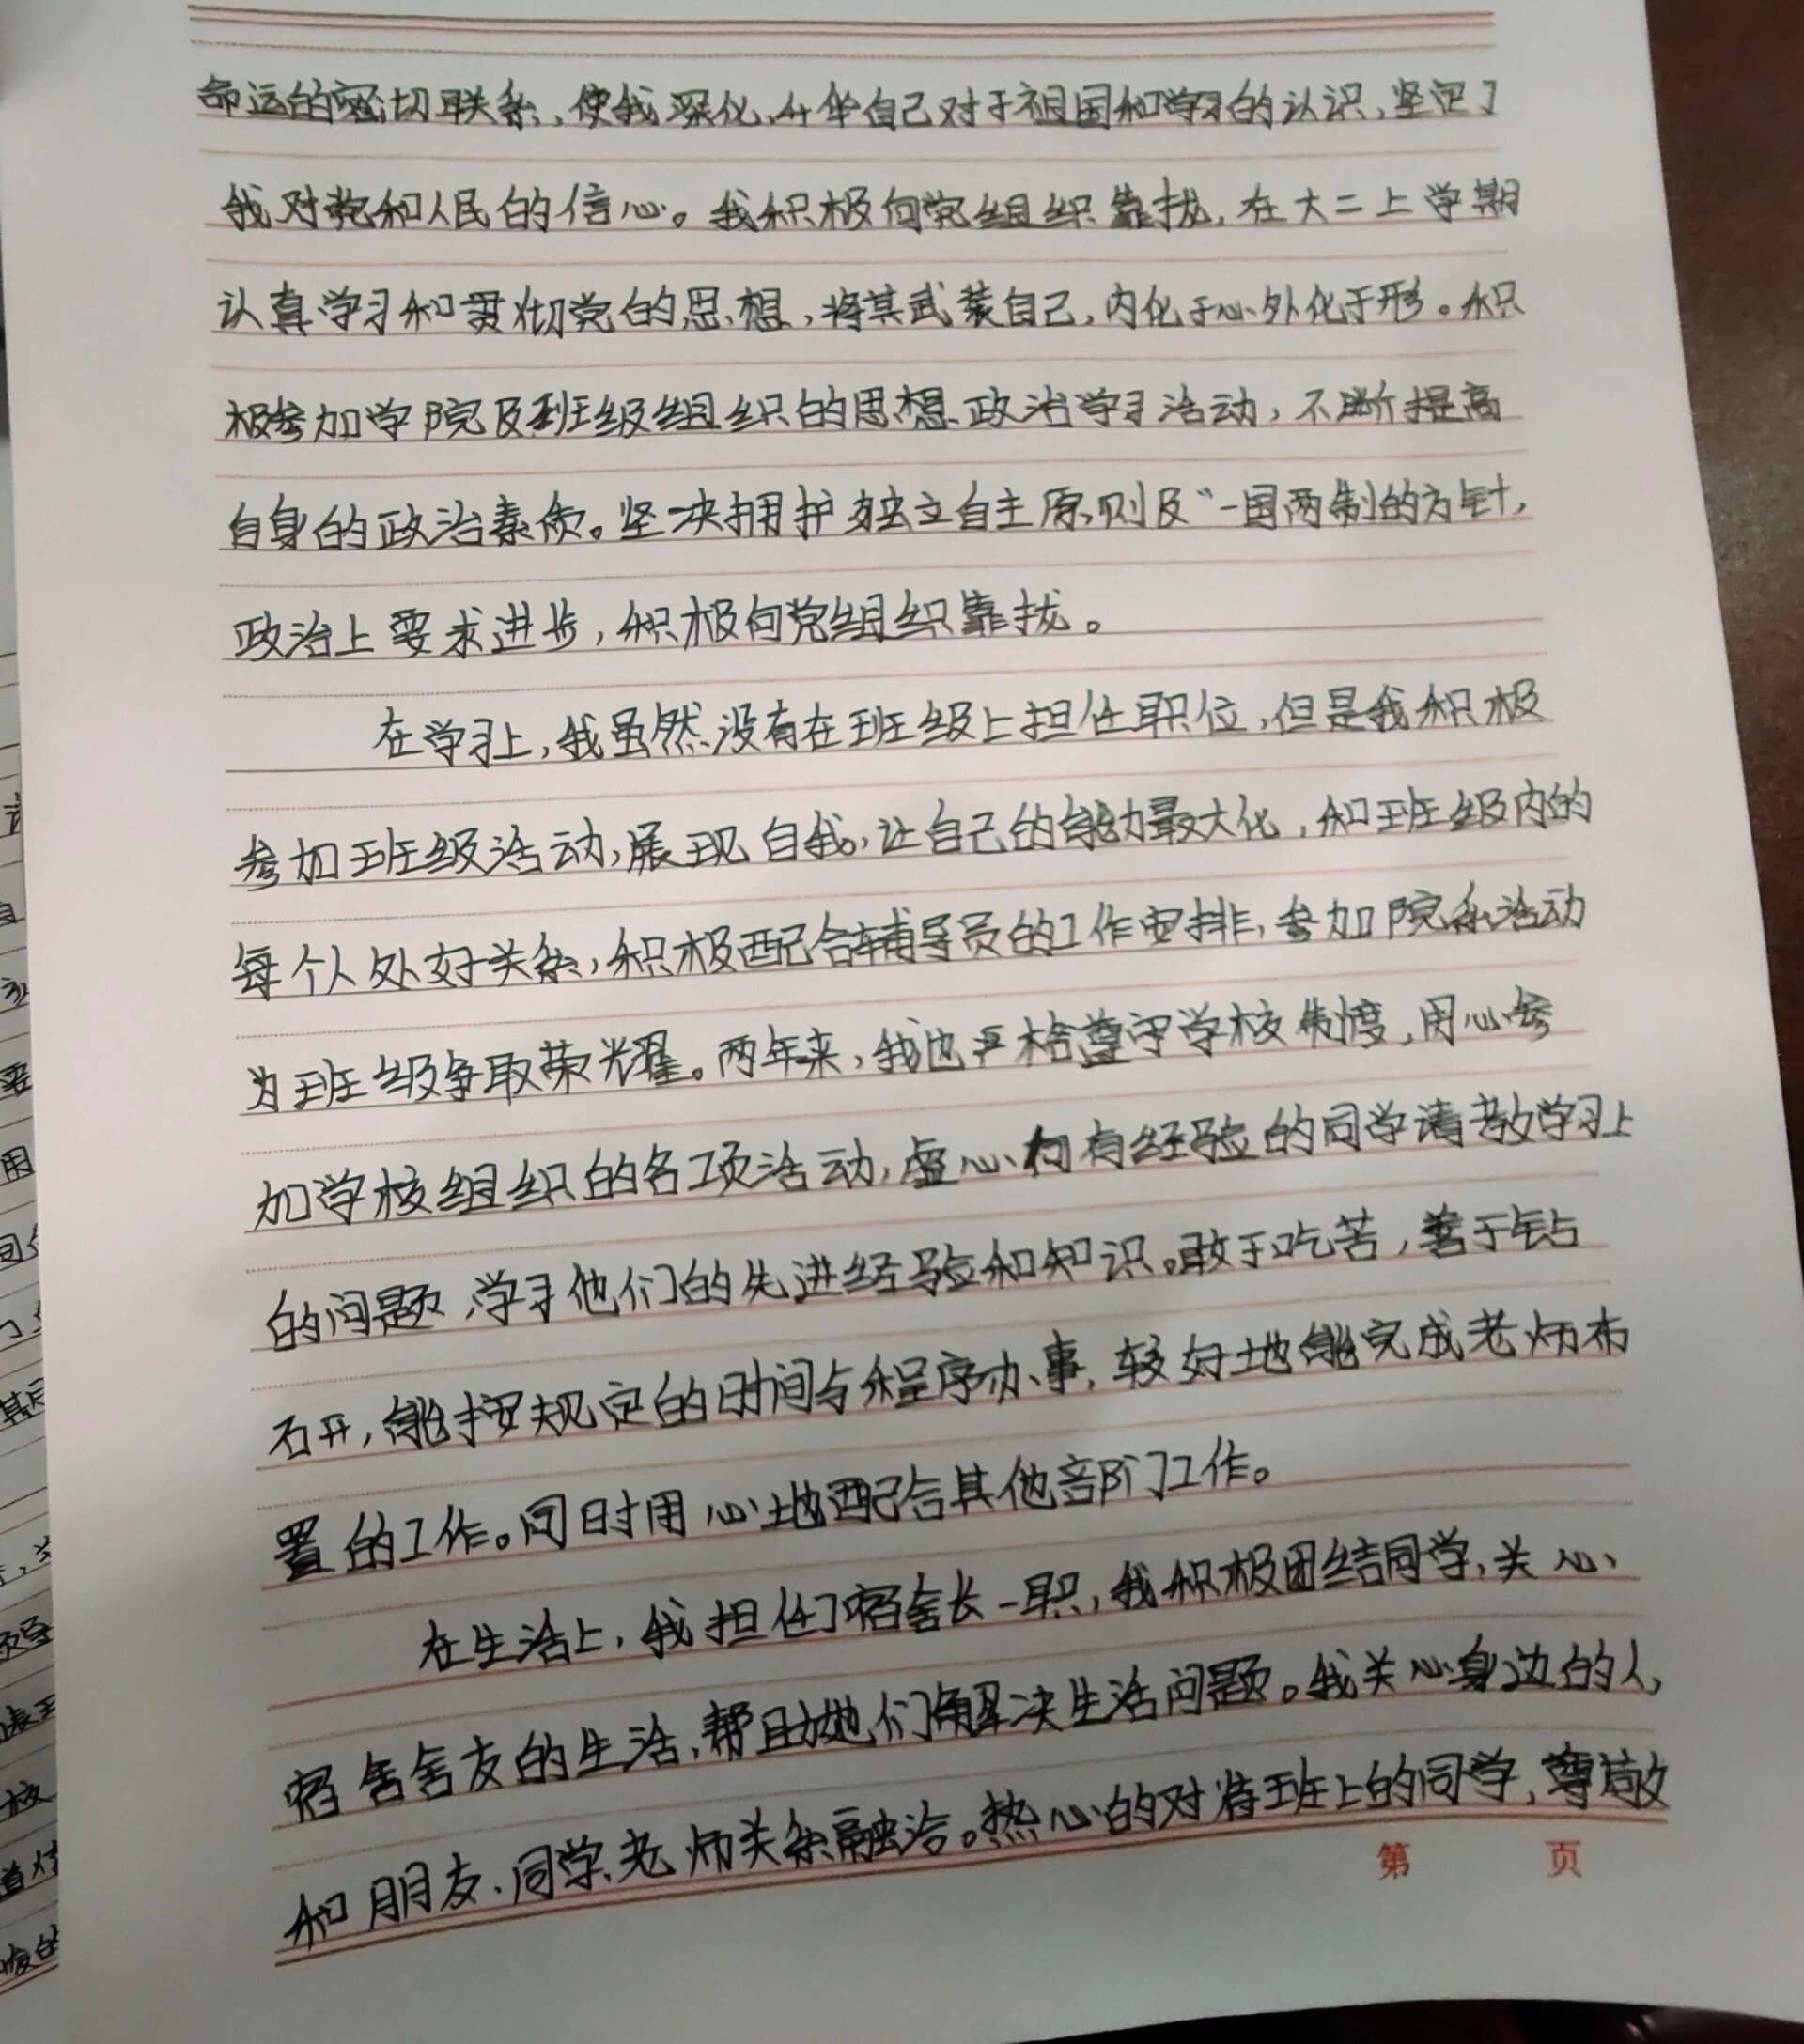 命运的密切联系，使我深化、升华自己对于祖国和学习的认识，坚定了
我对党和人民的信心。我积极向党组织靠拢，在大二上学期
认真学习和贯彻党的思想，将其武装自己，内化于心外化于形。积
极参加学院及班级组织的思想政治学习活动，不断提高
自身的政治素质。坚决拥护独立自主原则及“一国两制的方针，
政治上要求进步，积极向党组织靠拢。
在学习上，我虽然没有在班级上担任职位，但是我积极
参加班级活动，展现自我，让自己的能力最大化，和班级内的
每个人处好关系，积极配合辅导员的工作安排，参加院系活动
为班级争取荣光耀。两年来，我也严格遵守学校制度，用心参
加学校组织的各项活动，虚心向有经验的同学请教学习上
的问题，学习他们的先进经验和知识。敢于吃苦，善于钻
研，能按规定的时间与程序办事，较好地能完成老师布
置的工作。同时用心地配合其他部门工作。
在生活上，我担任了宿舍长一职，我积极团结同学，关心
宿舍舍友的生活，帮助她们解决生活问题。我关心身边的人，
和朋友、同学、老师关系融洽。热心的对待班上的同学，尊敬
第 页